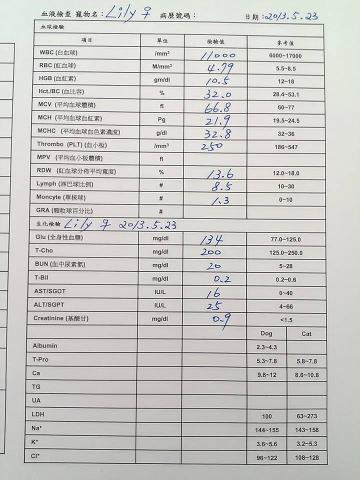 血液檢查 寵物名：Lily ♀ 病歷號碼： 日期：2013.5.23
血液檢驗
項目 單位 檢驗值 參考值
WBC (白血球) /mm³ 11000 6000~17000
RBC (紅血球) M/mm³ 4.79 5.5~8.5
HGB (血紅素) gm/dl 10.5 12~18
Hct./BC (血比容) % 32.0 28.4~53.1
MCV (平均血球體積) fl 66.8 60~77
MCH (平均血球血紅素) Pg 21.9 19.5~24.5
MCHC (平均血球血色素濃度) g/dl 32.8 32~36
Thrombo (PLT) (血小板) /mm³ 250 186~547
MPV (平均血小板體積) fl
RDW (紅血球分佈平均寬度) % 13.6 12.0~18.0
Lymph (淋巴球比例) # 8.5 10~30
Moncyte (單核球) # 1.3 0~10
GRA (顆粒球百分比) #
生化檢驗 Lily ♀ 2013.5.23
Glu (全身性血糖) mg/dl 134 77.0~125.0
T-Cho mg/dl 200 125.0~250.0
BUN (血中尿素氮) mg/dl 20 5~28
T-Bil mg/dl 0.2 0.2~0.6
AST/SGOT IU/L 16 0~40
ALT/SGPT IU/L 25 4~66
Creatinine (基酸酐) mg/dl 0.9 <1.5
Dog Cat
Albumin 2.3~4.3
T-Pro 5.3~7.8 5.8~7.8
Ca 9.8~12 8.6~10.8
TG
UA
LDH 100 63~273
Na⁺ 144~155 143~158
K⁺ 3.6~5.6 3.2~5.3
Cl⁻ 96~122 108~128